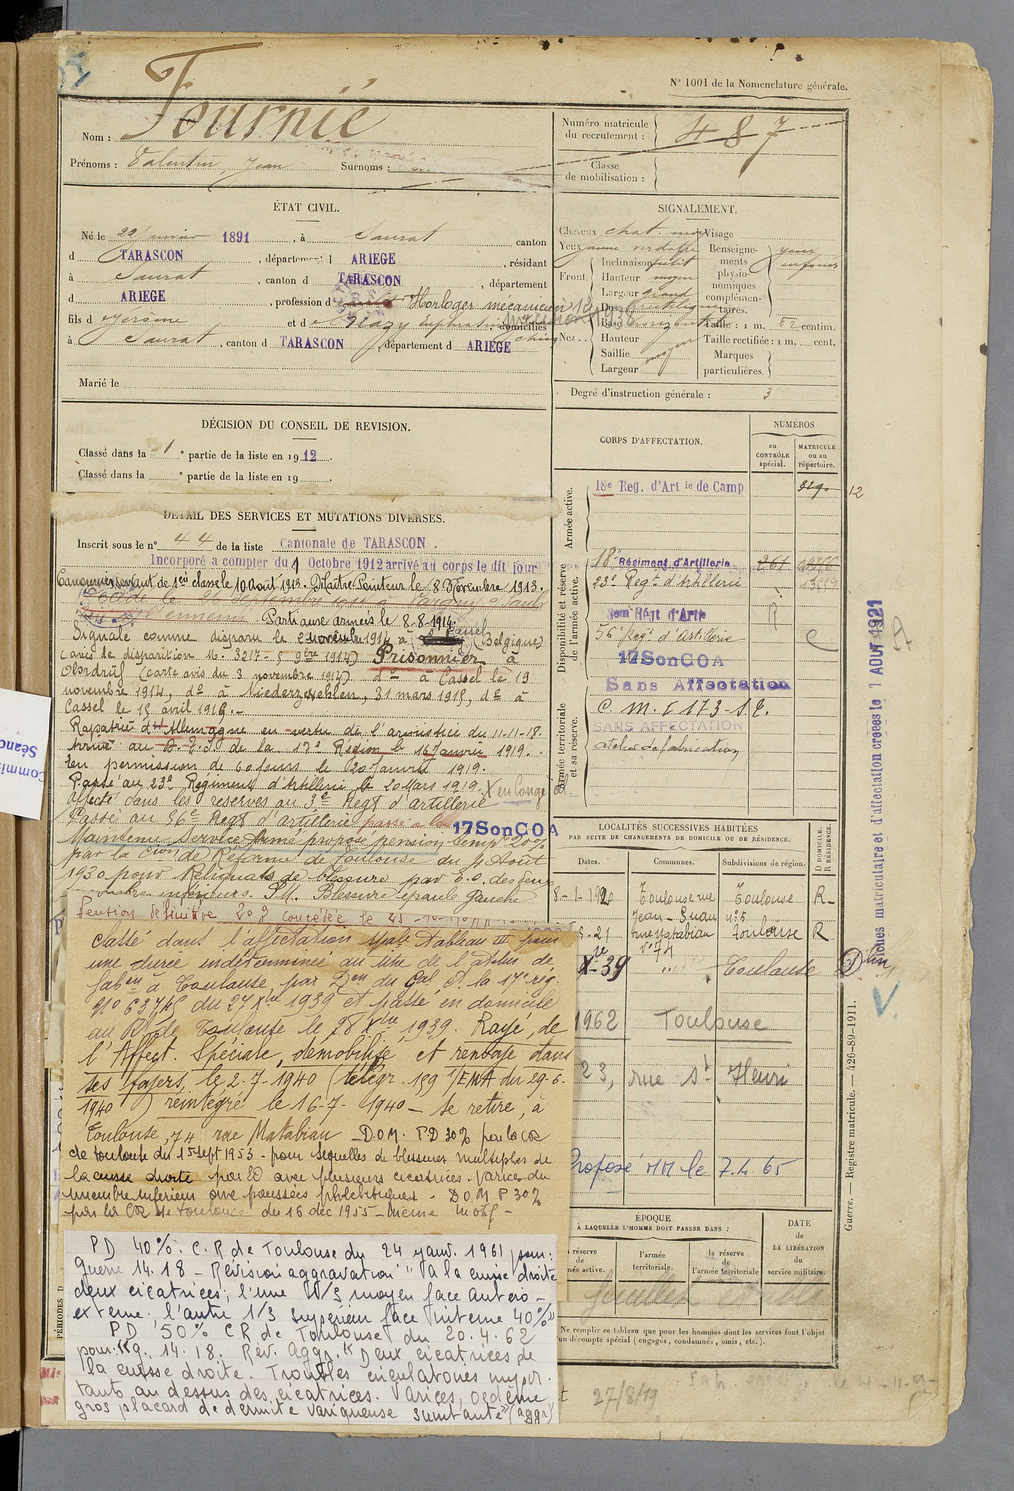 N° 1001 de la Nomenclature générale.
Nom : Fournié
Prénoms : Valentin Jean Surnoms :
Numéro matricule du recrutement : 487
Classe de mobilisation :
ÉTAT CIVIL.
Né le 22 janvier 1891, à Saurat canton
d TARASCON, département d ARIEGE, résidant
à Saurat, canton d TARASCON, département
d ARIEGE, profession d Horloger mécanicien
fils d Jérôme et d domiciliés
à Saurat, canton d TARASCON, département d ARIEGE
Marié le
SIGNALEMENT.
Cheveux chat. Visage
Yeux jaune verdatre
Front Inclinaison
Hauteur moyen
Largeur grand
Nez
Dos rectiligne
Base
Hauteur
Saillie moyen
Largeur
Renseignements physionomiques complémentaires.
Taille : 1 m. 52 centim.
Taille rectifiée : 1 m. cent.
Marques particulières.
Degré d'instruction générale : 3
DÉCISION DU CONSEIL DE REVISION.
Classé dans la 1e partie de la liste en 1912.
Classé dans la e partie de la liste en 19 .
DÉTAIL DES SERVICES ET MUTATIONS DIVERSES.
Inscrit sous le n° 44 de la liste Cantonale de TARASCON.
Incorporé a compter du 1 Octobre 1912 arrivé au corps le dit jour
Canonnier servant de 1ère classe le 10 Août 1913. Maître Pointeur le 8 Novembre 1913.
Parti aux armées le 8.8.1914.
Signalé comme disparu le 2 novembre 1914 à (Belgique)
(avis de disparition N. 3217 - 9bre 1914) Prisonnier à
Ohrdruf (carte avis du 3 novembre 1914) d° à Cassel le 19
novembre 1914, d° à Niederzwehren, 31 mars 1915, d° à
Cassel le 15 avril 1916.-
Rapatrié d'Allemagne en vertu de l'armistice du 11-11-18.
Arrivé au de la 17e Région le 16 Janvier 1919.
En permission de 60 jours le 20 Janvier 1919.
Passé au 23e Régiment d'Artillerie le 20 Mars 1919. X en congé
Affecté dans les réserves au 3e Regt d'artillerie
Passé au 56e Regt d'artillerie passé a la 17 Son C O A
Maintenu service armé proposé pension temp. 20%
par la Con de Réforme de Toulouse du 4 Août
1930 pour Reliquats de blessure par E.O. des deux
membres inférieurs. Blessure épaule gauche
Pension définitive 20% concédée le 25
Classé dans l'affectation spale Tableau III pour
une durée indéterminée au titre de l'atelier de
fabon à Toulouse, par Don du Gal Ct la 17e rég.
N° 6374 du 27 Xbre 1939 et passé en domicile
au Toulouse le 28 Xbre 1939. Rayé, de
l'Affect. Spéciale, démobilisé et renvoyé dans
ses foyers, le 2.7.1940 (télégr. 189 1/EMA du 29.6.
1940) réintégré le 16-7-1940 - se retire, à
Toulouse, 74 rue Matabiau - D.O.M. PD 30% par la CR
de toulouse du 1er sept 1953 - pour Sequelles de blessures multiples de
la cuisse droite par EO avec plusieurs cicatrices. Varices du
membre inférieur avec poussées phlébitiques. D.O.M P 30%
par la CR de toulouse du 16 dec 1955 - même motif -
PD 40%. C.R de Toulouse du 24 janv. 1961 pour :
guerre 14.18 - Révision aggravation " A la cuisse droite
deux cicatrices ; l'une 1/3 moyen face antéro -
externe ; l'autre 1/3 supérieur face interne 40%"
PD 50% C R de Toulouse du 20.4.62
pour : g. 14.18. Rev. Aggr. "Deux cicatrices de
la cuisse droite. Troubles circulatoires impor-
tants au dessus des cicatrices. Varices, oedème,
gros placard de dermite variqueuse suintante" (aggr)
CORPS D'AFFECTATION.
NUMÉROS
au CONTRÔLE spécial.
MATRICULE ou au répertoire.
Armée active.
18e Reg. d'Artie de Camp
Disponibilité et réserve de l'armée active.
18e Régiment d'Artillerie 261
23e Regt d'Artillerie
3eme Régt d'Artie
56e Regt d'Artillerie
17 Son C O A
Armée territoriale et sa réserve.
Sans Affectation
SANS AFFECTATION
atelier de fabrication
LOCALITÉS SUCCESSIVES HABITÉES
PAR SUITE DE CHANGEMENTS DE DOMICILE OU DE RÉSIDENCE.
Dates. Communes. Subdivisions de région. D DOMICILE. R RÉSIDENCE.
8-1-1920 Toulouse rue Jean-Suau n° 5 Toulouse R
-21 rue Matabiau n° 74 toulouse R
Xbre-39 " Toulouse D
1962 Toulouse
23, rue St Henri
Proposé MM le 7.4.65
ÉPOQUE
À LAQUELLE L'HOMME DOIT PASSER DANS :
la réserve de l'armée active.
l'armée territoriale.
la réserve de l'armée territoriale
DATE DE LA LIBÉRATION du service militaire.
Ne remplir ce tableau que pour les hommes dont les services font l'objet
d'un décompte spécial (engagés, condamnés, omis, etc.).
27/8/19
Fiches matriculaire et d'affectation créées le 1 AOUT 1921
Guerre. — Registre matricule. — 426-89-1911.
PÉRIODES D
Commis
Séance